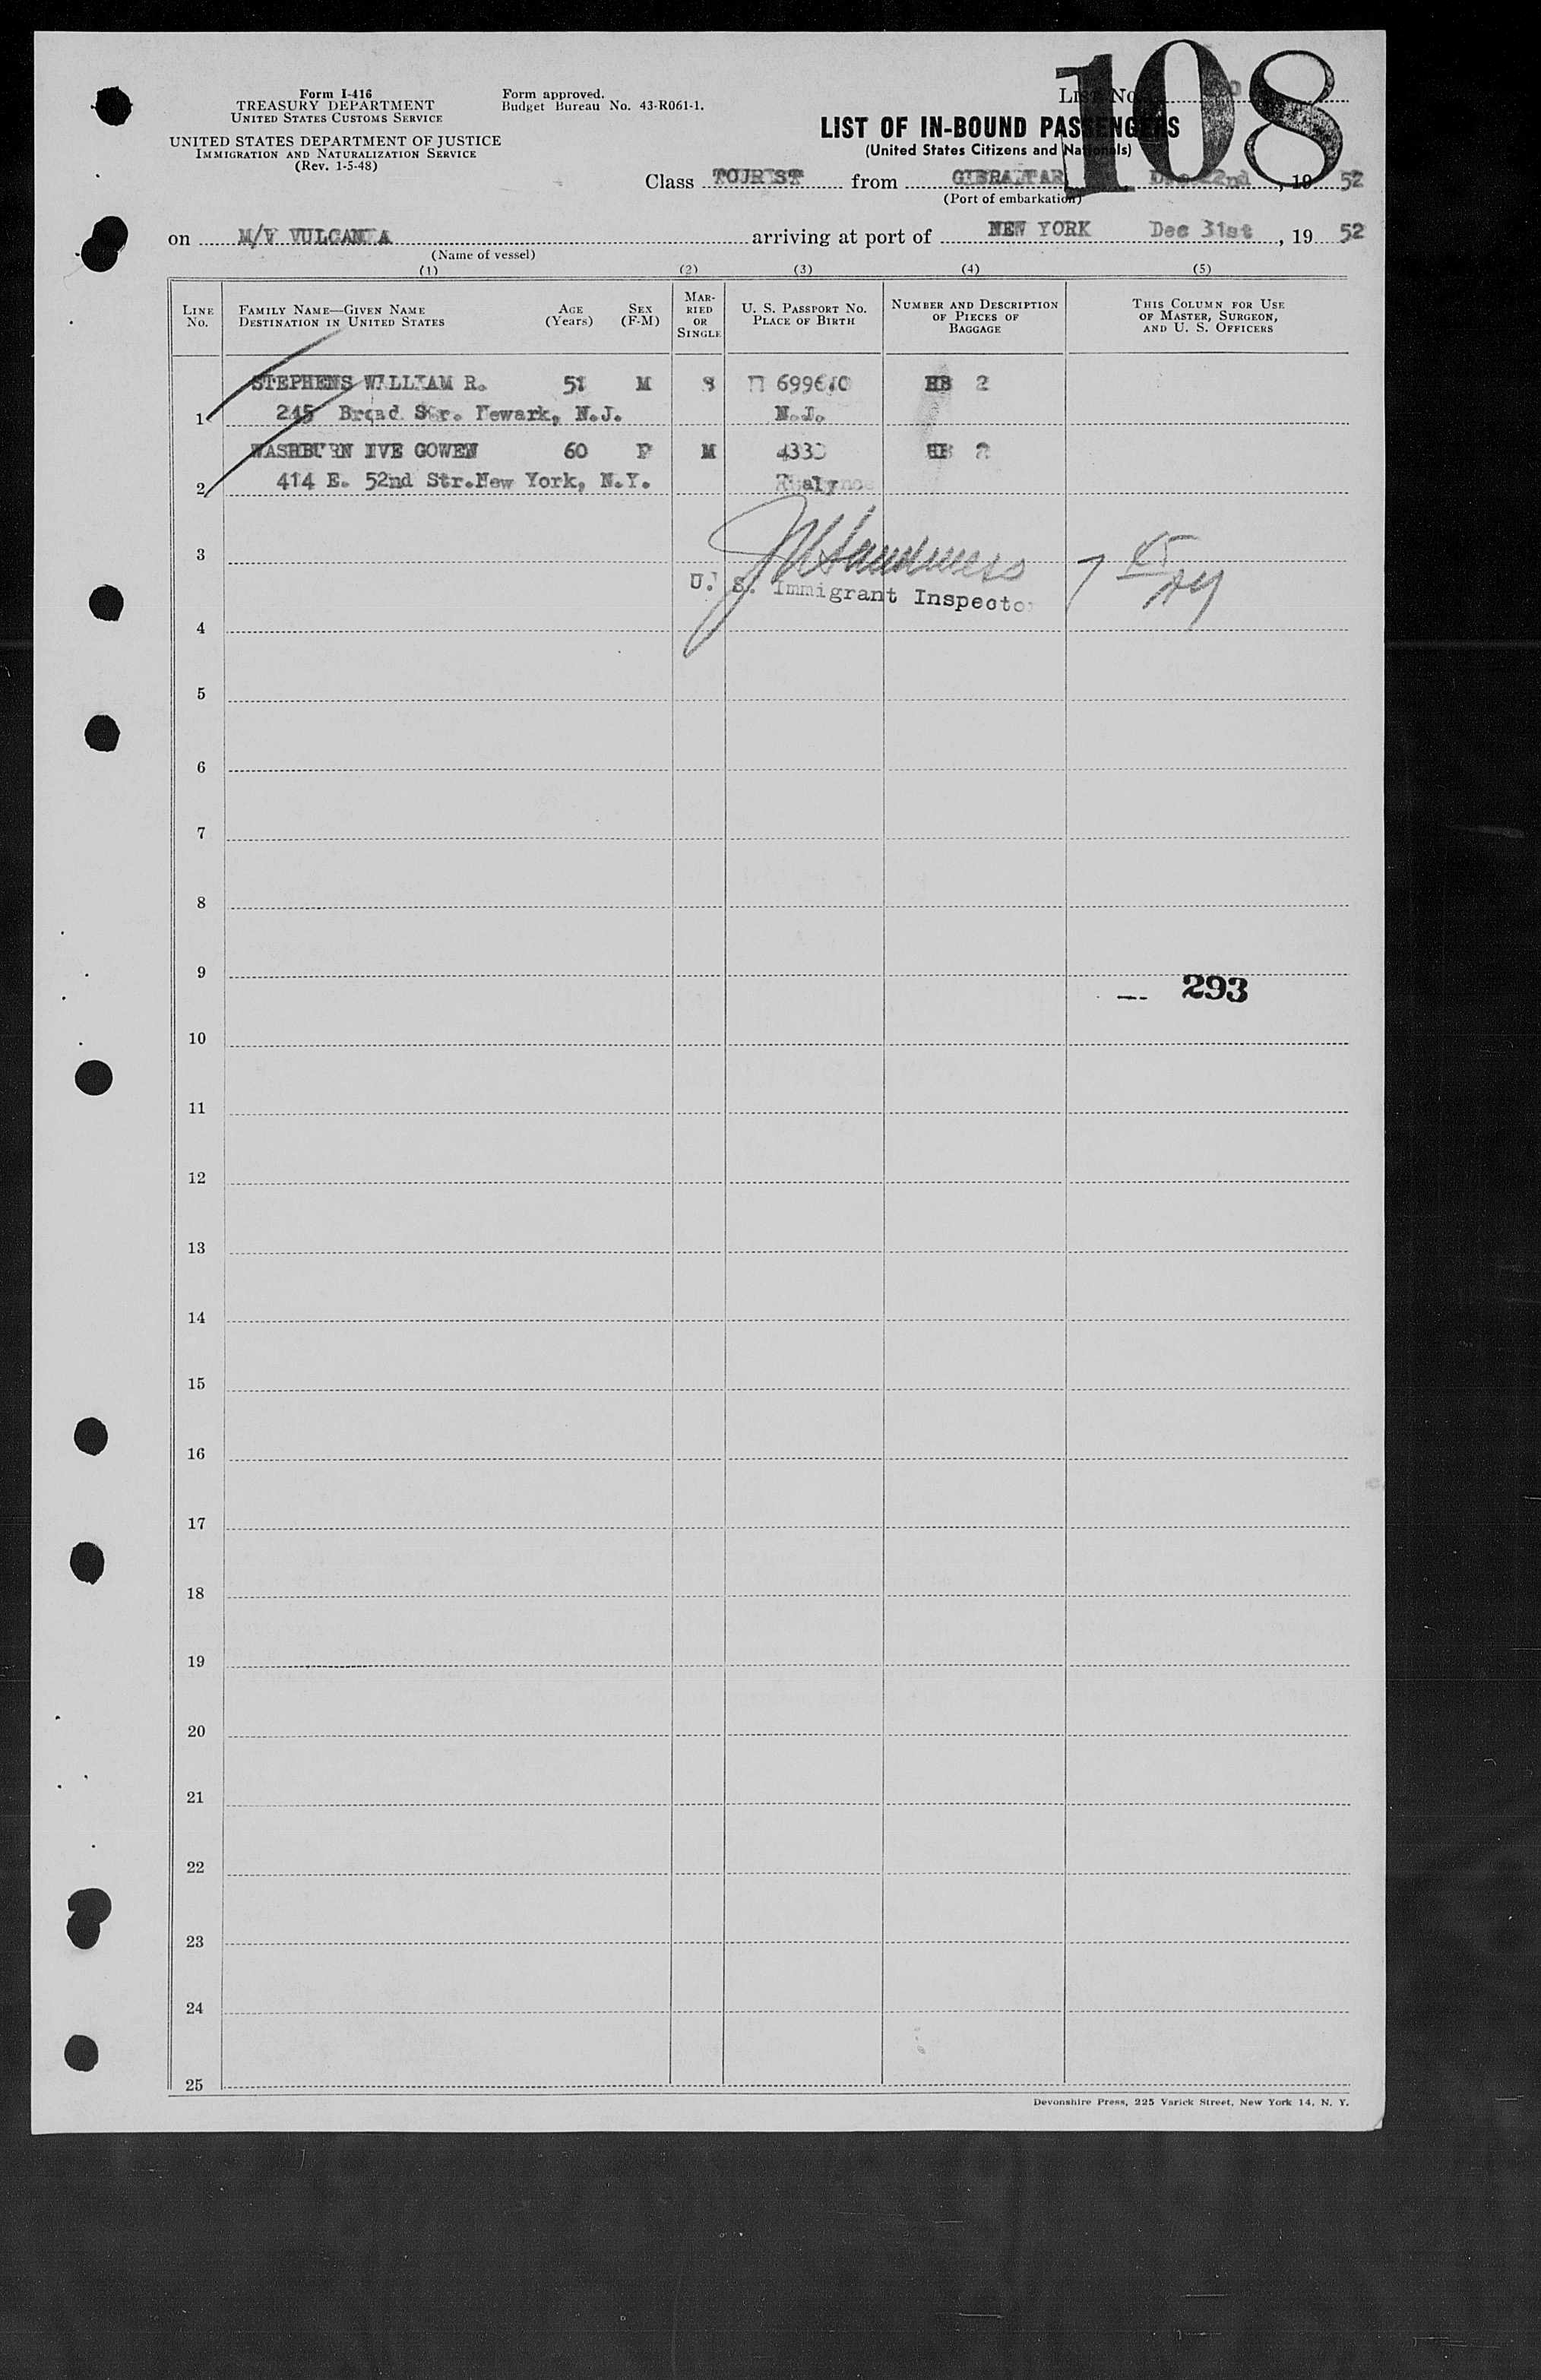 108
Form I-416
TREASURY DEPARTMENT
UNITED STATES CUSTOMS SERVICE
UNITED STATES DEPARTMENT OF JUSTICE
IMMIGRATION AND NATURALIZATION SERVICE
(Rev. 1-5-48)
Form approved.
Budget Bureau No. 43-R061-1.
List No.
LIST OF IN-BOUND PASSENGERS
(United States Citizens and Nationals)
Class TOURIST from GIBRALTAR Dec 22nd, 19 52
(Port of embarkation)
on M/V VULCANIA arriving at port of NEW YORK Dec 31st, 19 52
(Name of vessel)
(1) (2) (3) (4) (5)
LINE No.
FAMILY NAME—GIVEN NAME
DESTINATION IN UNITED STATES
AGE (Years)
SEX (F-M)
MARRIED OR SINGLE
U. S. PASSPORT No.
PLACE OF BIRTH
NUMBER AND DESCRIPTION OF PIECES OF BAGGAGE
THIS COLUMN FOR USE OF MASTER, SURGEON, AND U. S. OFFICERS
STEPHENS WILLIAM R. 51 M S HB 2
1 245 Broad Str. Newark, N.J. N.J.
WASHBURN EVE GOWEN 60 F M HB 2
2 414 E. 52nd Str. New York, N.Y.
3
U. S. Immigrant Inspector
4
5
6
7
8
9
293
10
11
12
13
14
15
16
17
18
19
20
21
22
23
24
25
Devonshire Press, 225 Varick Street, New York 14, N. Y.